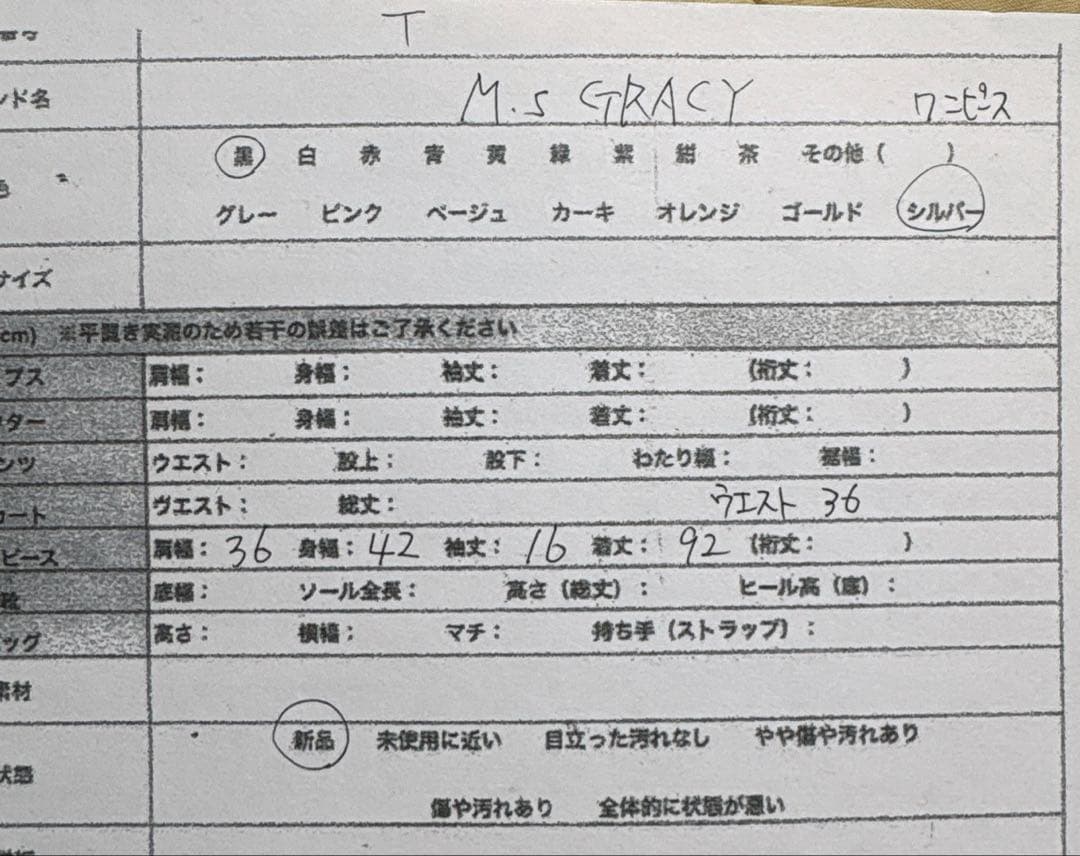 T
ンド名 M.S GRACY ワンピース
黒 白 赤 青 黄 緑 紫 紺 茶 その他 ( )
色
グレー ピンク ベージュ カーキ オレンジ ゴールド シルバー
サイズ
cm) ※平置き実測のため若干の誤差はご了承ください
プス 肩幅： 身幅： 袖丈： 着丈： (裄丈： )
ター 肩幅： 身幅： 袖丈： 着丈： (裄丈： )
ンツ ウエスト： 股上： 股下： わたり幅： 裾幅：
カート ウエスト： 総丈： ウエスト 36
ピース 肩幅： 36 身幅： 42 袖丈： 16 着丈： 92 (裄丈： )
靴 底幅： ソール全長： 高さ（総丈）： ヒール高（底）：
ッグ 高さ： 横幅： マチ： 持ち手（ストラップ）：
素材
新品 未使用に近い 目立った汚れなし やや傷や汚れあり
状態
傷や汚れあり 全体的に状態が悪い